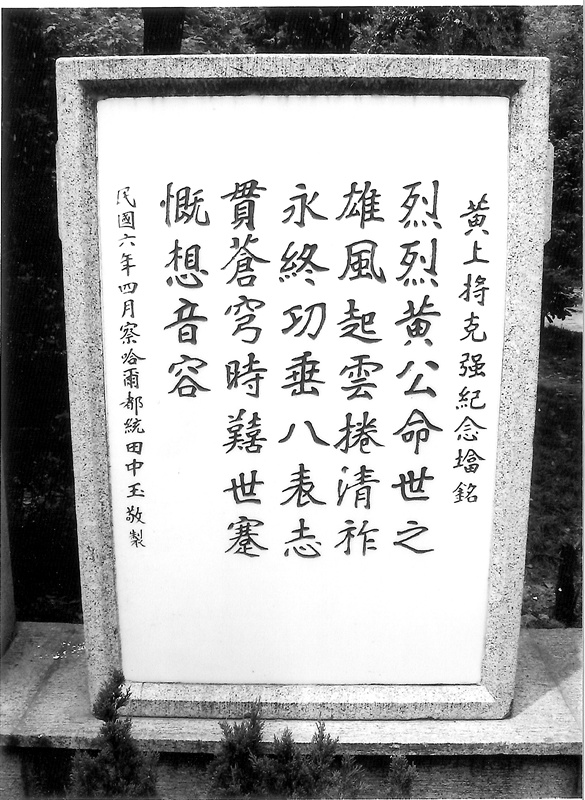 黃上將克强紀念墖銘
烈烈黃公命世之
雄風起雲捲清祚
永終功垂八表志
貫蒼穹時囏世蹇
慨想音容
民國六年四月察哈爾都統田中玉敬製